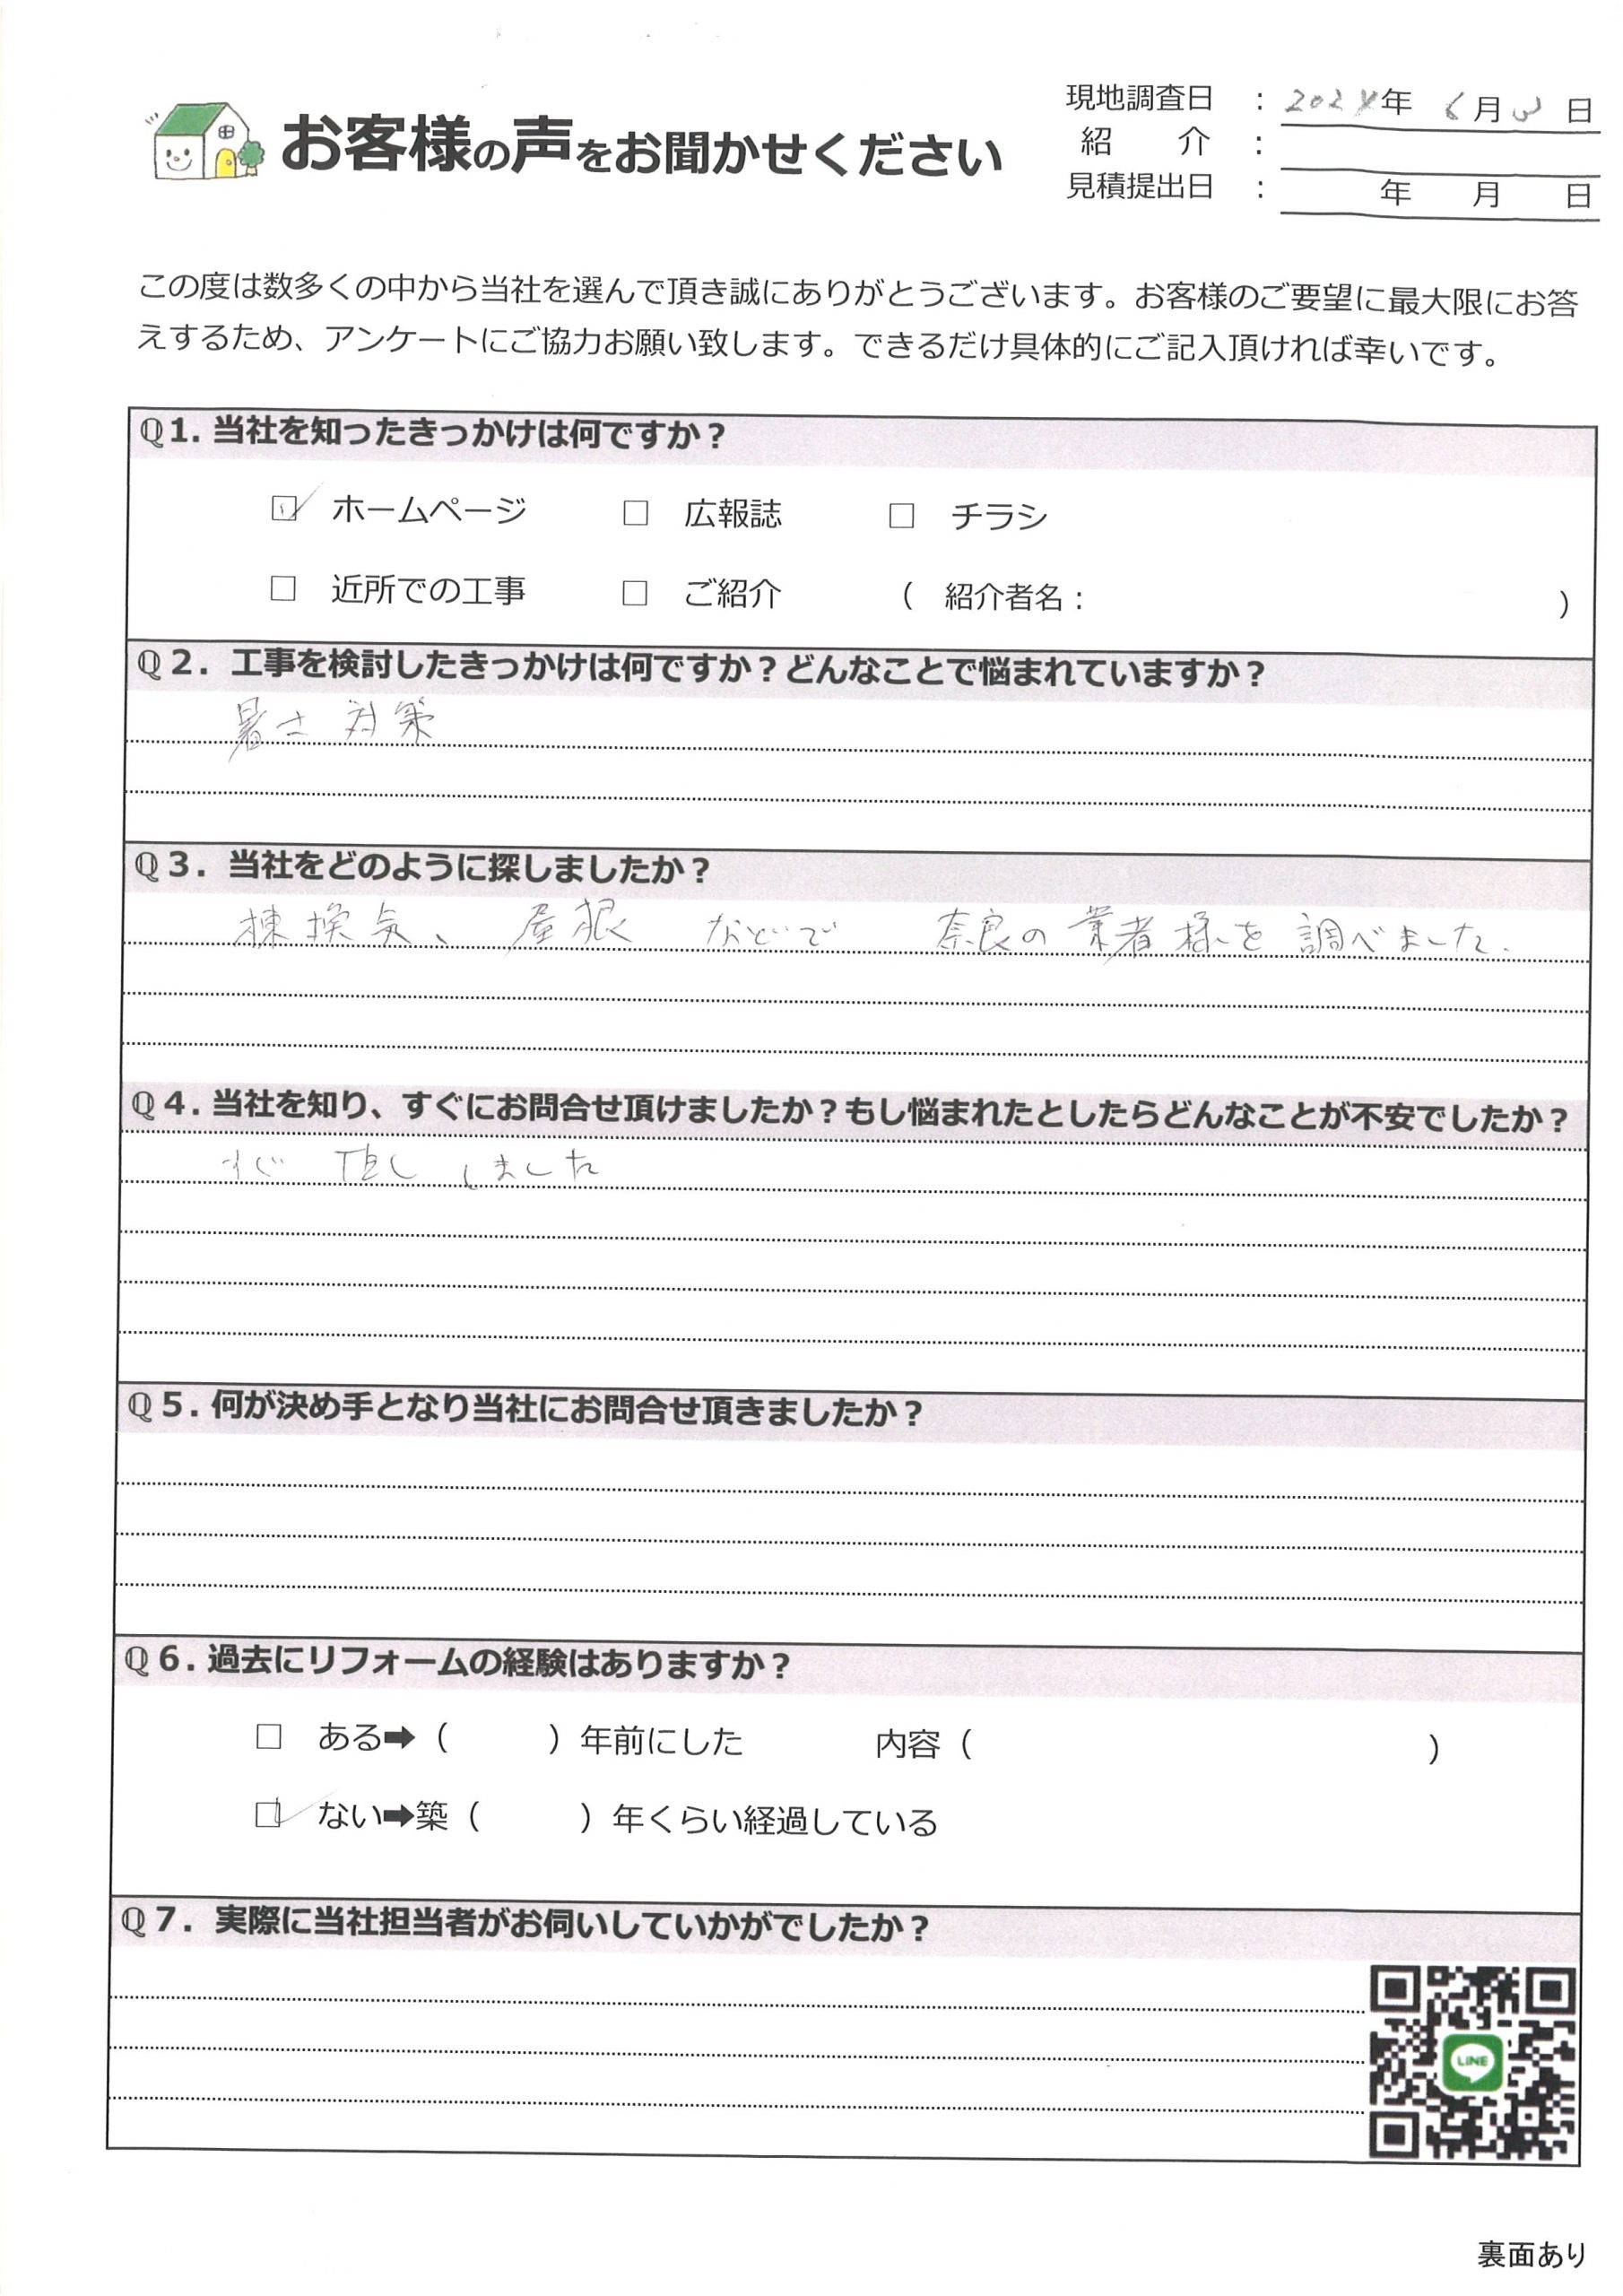 お客様の声をお聞かせください
現地調査日 : 2024年 6月 3日
紹 介 :
見積提出日 : 年 月 日
この度は数多くの中から当社を選んで頂き誠にありがとうございます。お客様のご要望に最大限にお答
えするため、アンケートにご協力お願い致します。できるだけ具体的にご記入頂ければ幸いです。
Q1. 当社を知ったきっかけは何ですか?
☑ ホームページ □ 広報誌 □ チラシ
□ 近所での工事 □ ご紹介 ( 紹介者名: )
Q2. 工事を検討したきっかけは何ですか?どんなことで悩まれていますか?
暑さ対策
Q3. 当社をどのように探しましたか?
棟換気、屋根 などで 奈良の業者様を調べました.
Q4. 当社を知り、すぐにお問合せ頂けましたか?もし悩まれたとしたらどんなことが不安でしたか?
すぐ しました
Q5. 何が決め手となり当社にお問合せ頂きましたか?
Q6. 過去にリフォームの経験はありますか?
□ ある➡( )年前にした 内容( )
☑ ない➡築( )年くらい経過している
Q7. 実際に当社担当者がお伺いしていかがでしたか?
LINE
裏面あり